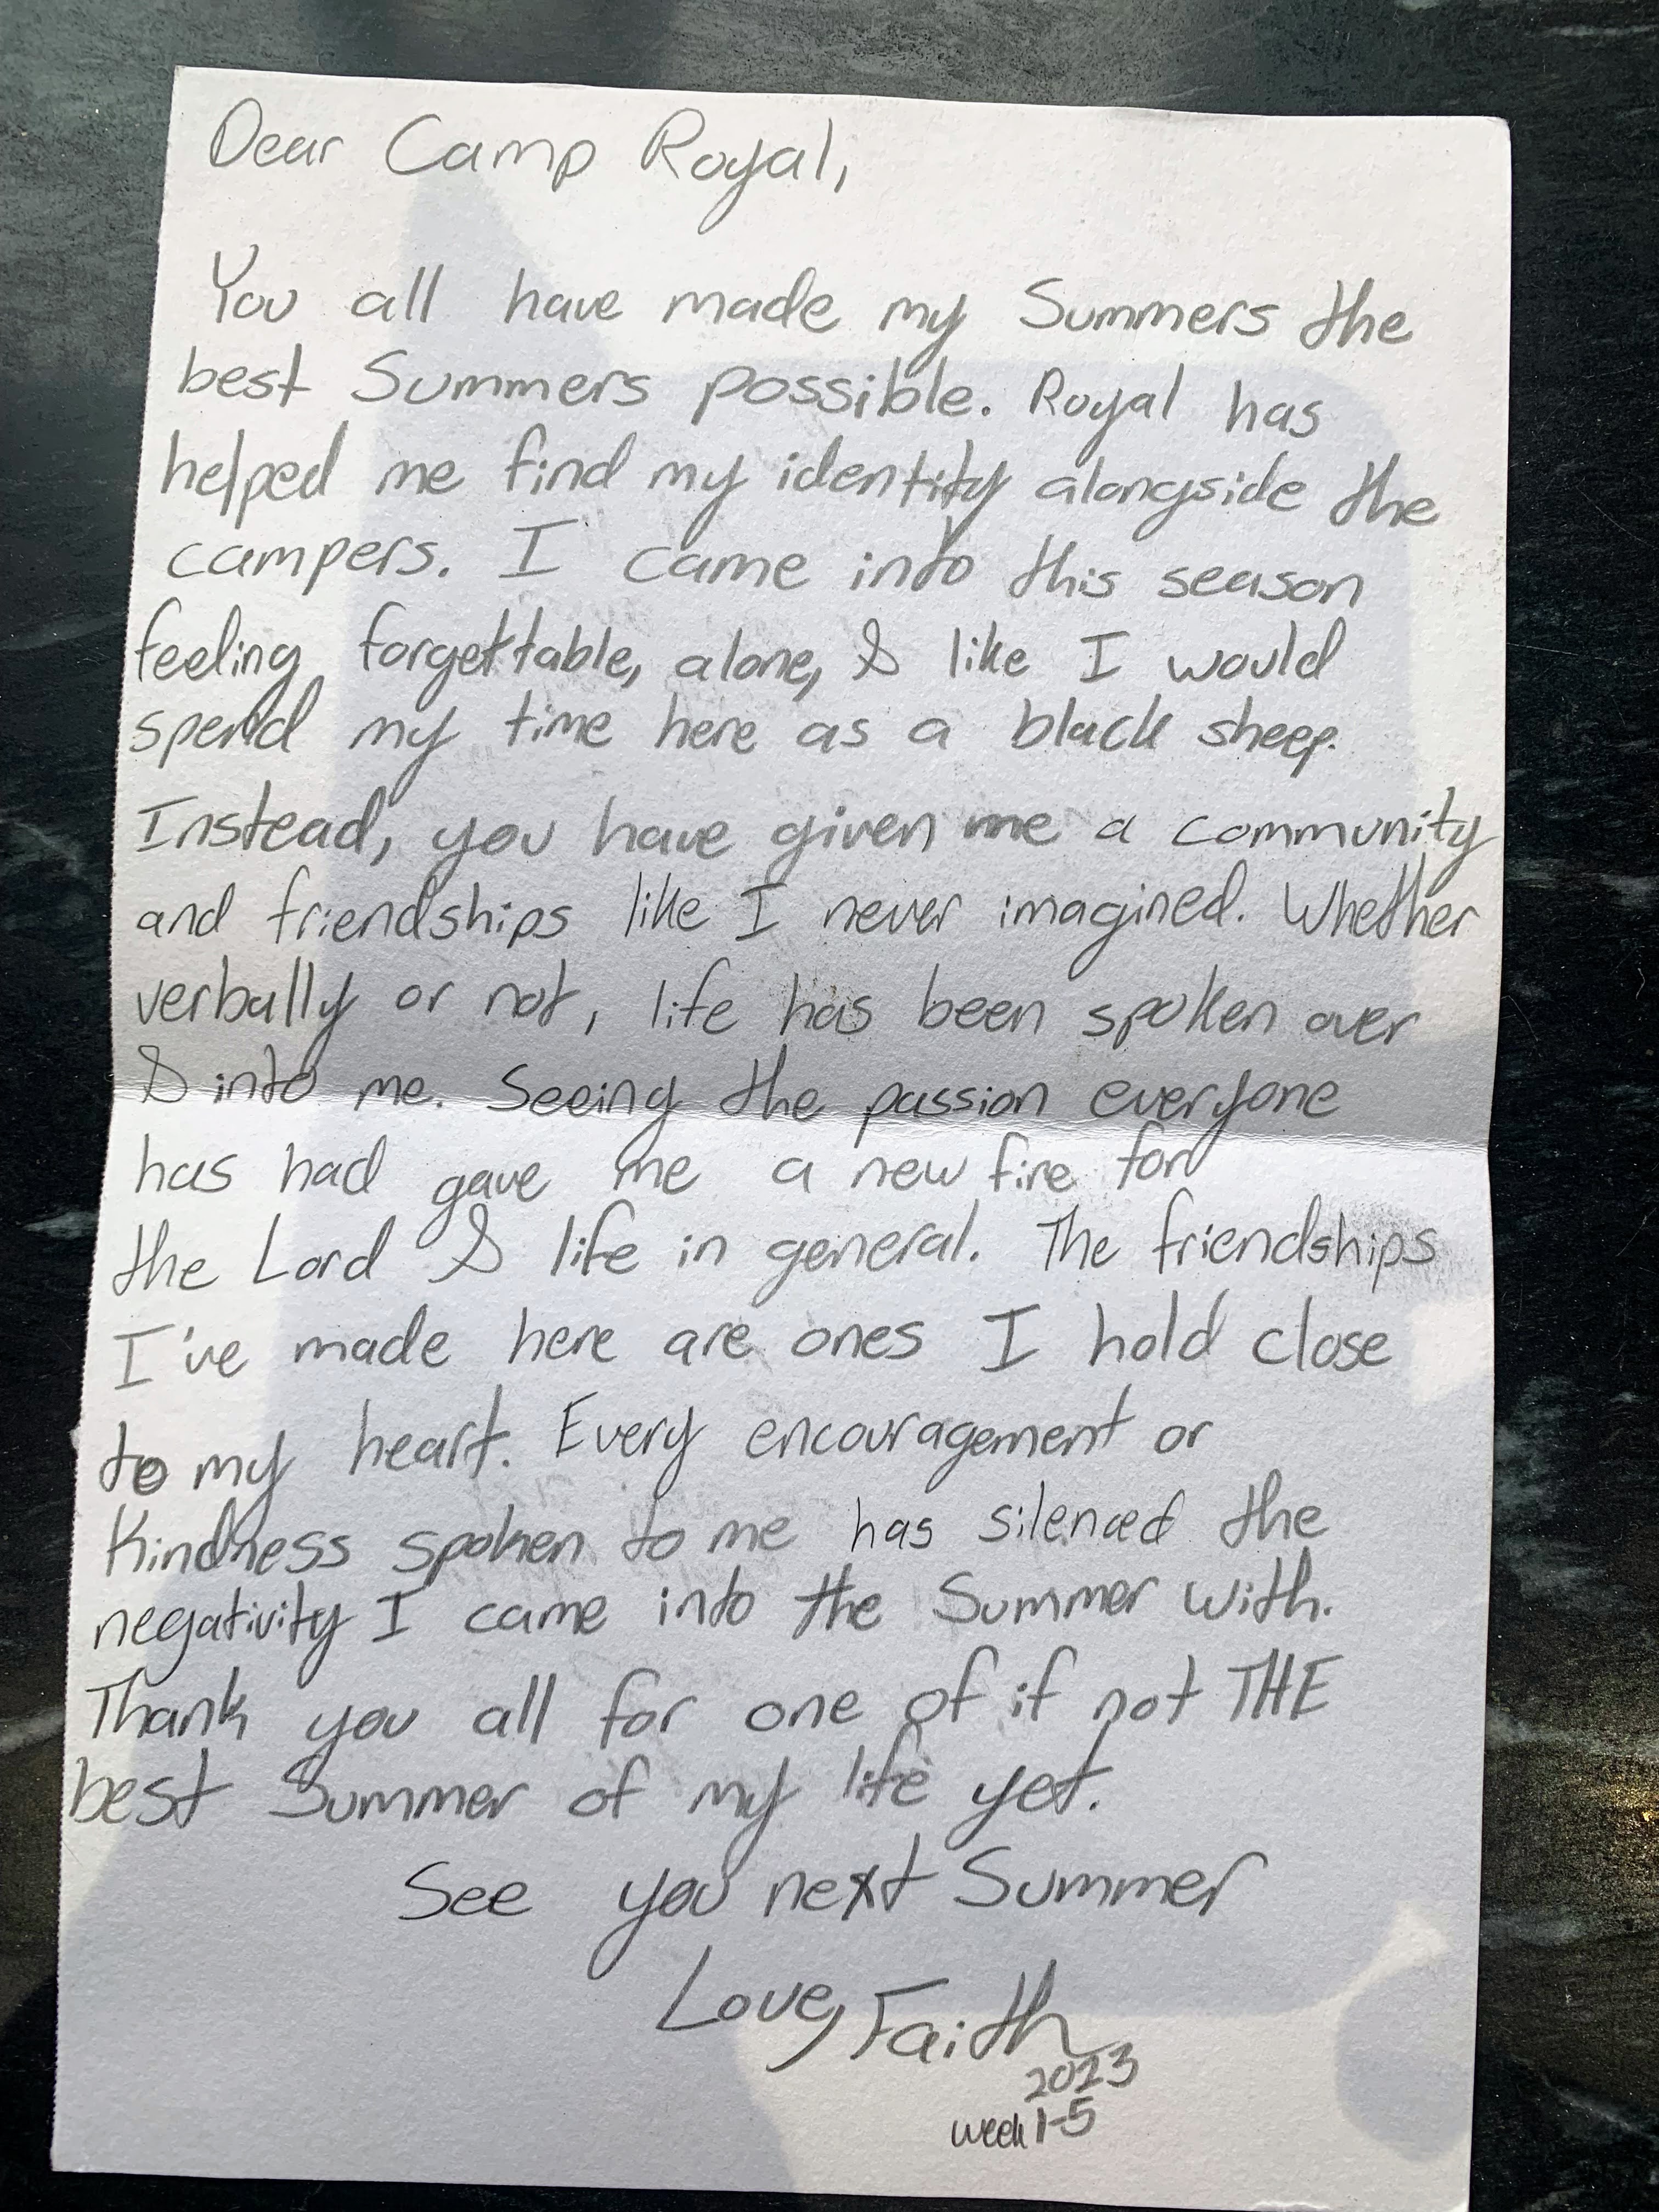 Dear Camp Royal,
You all have made my Summers the
best Summers possible. Royal has
helped me find my identity alongside the
campers. I came into this season
feeling forgettable, alone, & like I would
spend my time here as a black sheep.
Instead, you have given me a community
and friendships like I never imagined. Whether
verbally or not, life has been spoken over
& into me. Seeing the passion everyone
has had gave me a new fire for
the Lord & life in general. The friendships
I've made here are ones I hold close
to my heart. Every encouragement or
Kindness spoken to me has silenced the
negativity I came into the Summer with.
Thank you all for one of if not THE
best Summer of my life yet.
See you next Summer
Love, Faith
2023
week 1-5